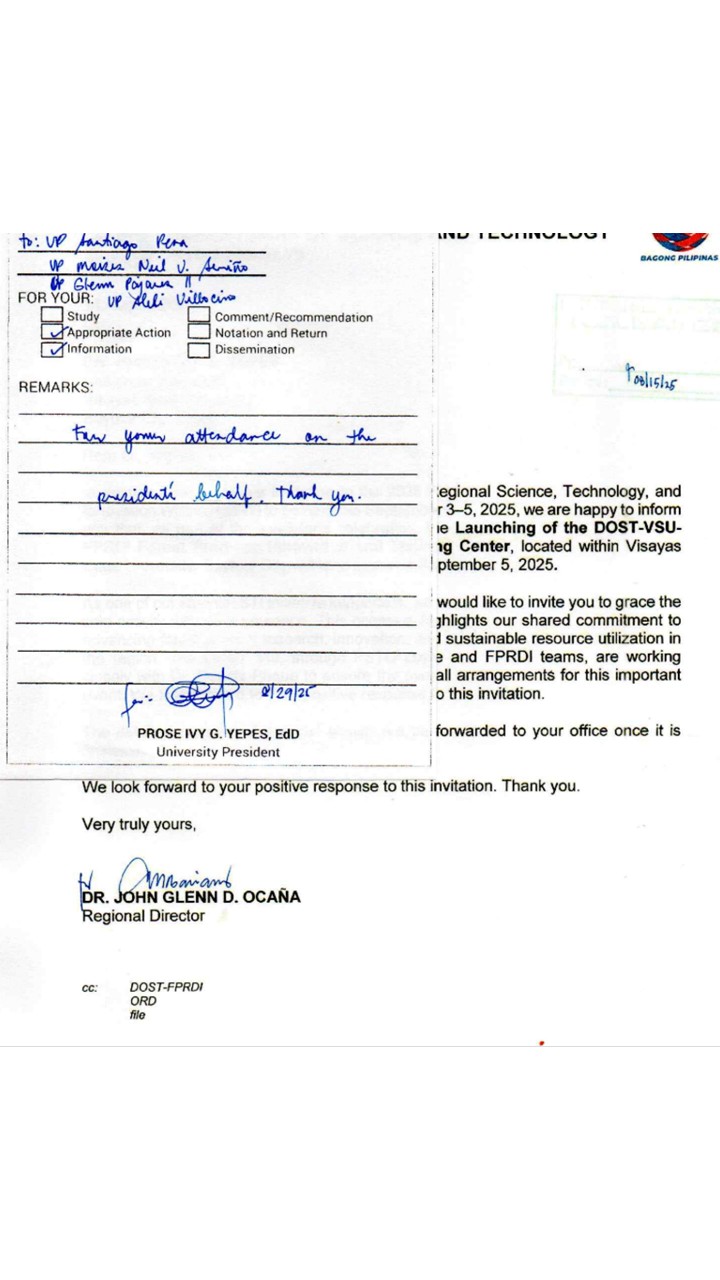 AND TECHNOLOGY
BAGONG PILIPINAS
to: VP Santiago Pena
VP Moises Neil V. Seriño
VP Glenn Pajares
FOR YOUR: VP Aleli Villocino
Study
Comment/Recommendation
Appropriate Action
Notation and Return
Information
Dissemination
08/15/25
REMARKS:
For your attendance on the
president's behalf. Thank you.
8/29/25
PROSE IVY G. YEPES, EdD
University President
Regional Science, Technology, and
r 3–5, 2025, we are happy to inform
e Launching of the DOST-VSU-
ng Center, located within Visayas
ptember 5, 2025.
would like to invite you to grace the
ghlights our shared commitment to
d sustainable resource utilization in
e and FPRDI teams, are working
all arrangements for this important
o this invitation.
forwarded to your office once it is
We look forward to your positive response to this invitation. Thank you.
Very truly yours,
DR. JOHN GLENN D. OCAÑA
Regional Director
cc: DOST-FPRDI
ORD
file